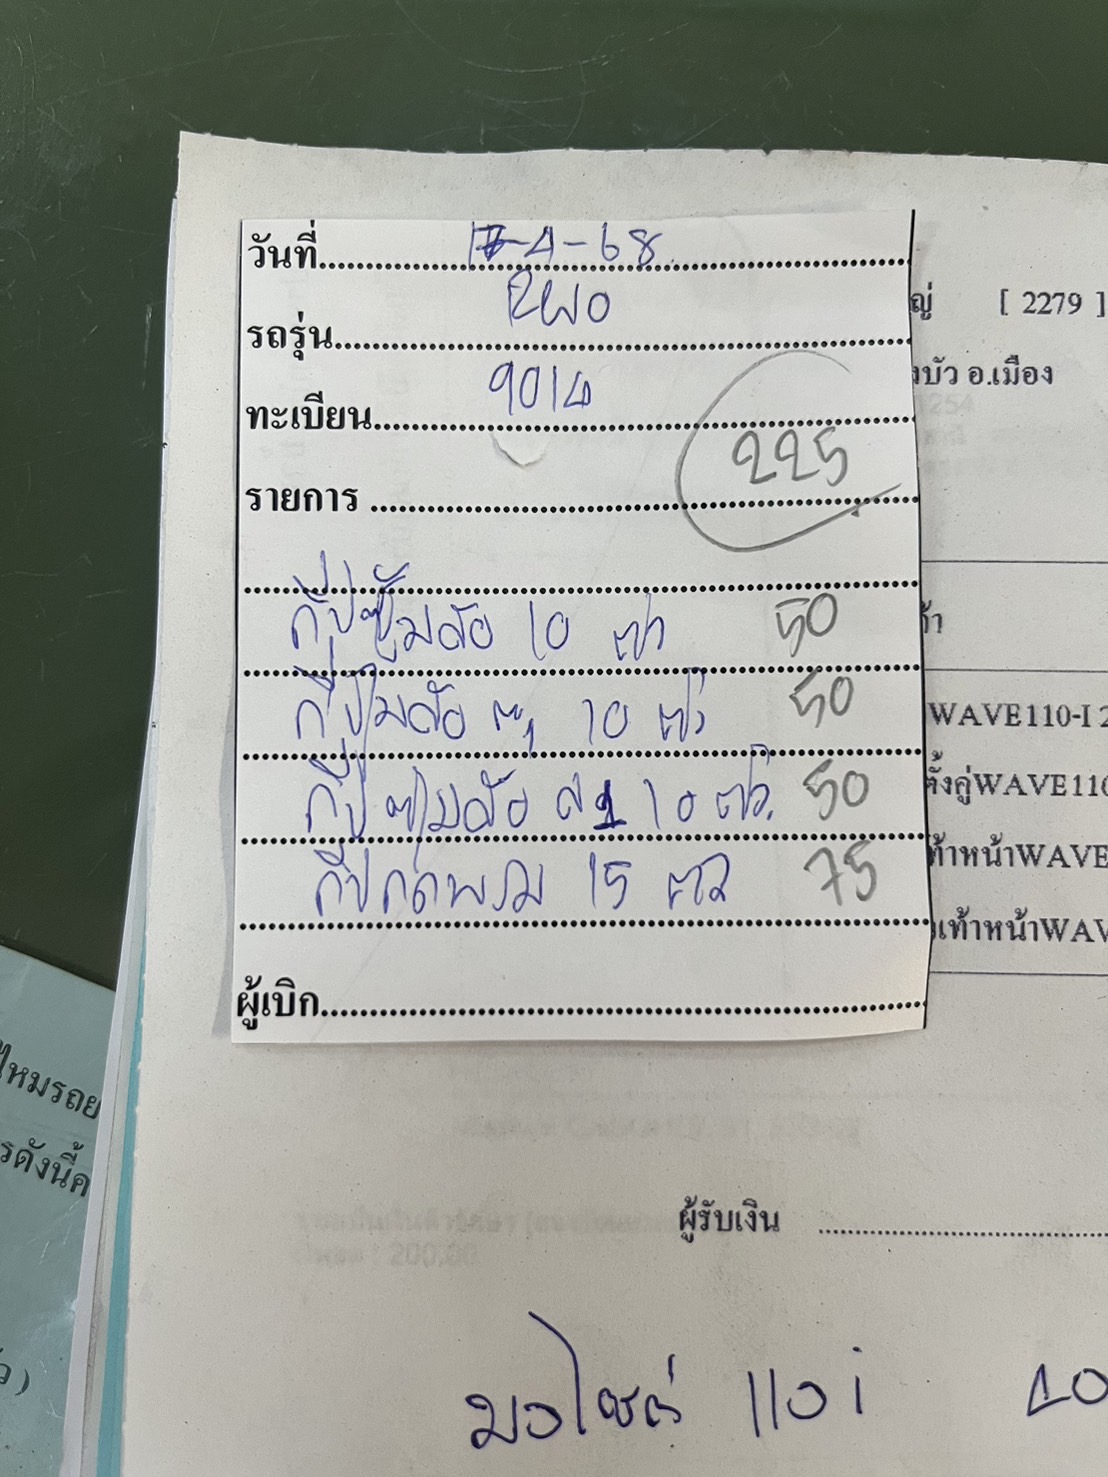 วันที่ 17-4-68
รถรุ่น
ทะเบียน 9014
รายการ 225
กี๊ปซุ้มล้อ 10 ตัว 50
10 ตัว 50
10 ตัว 50
กี๊ปกดพรม 15 ตัว 75
ผู้เบิก
[ 2279 ]
งบัว อ.เมือง
WAVE110-I 2
ตั้งคู่WAVE110
ท้าหน้าWAVE
เท้าหน้าWAV
ไหมรถย
รดังนี้ค
ผู้รับเงิน
มอไซค์ 110 i